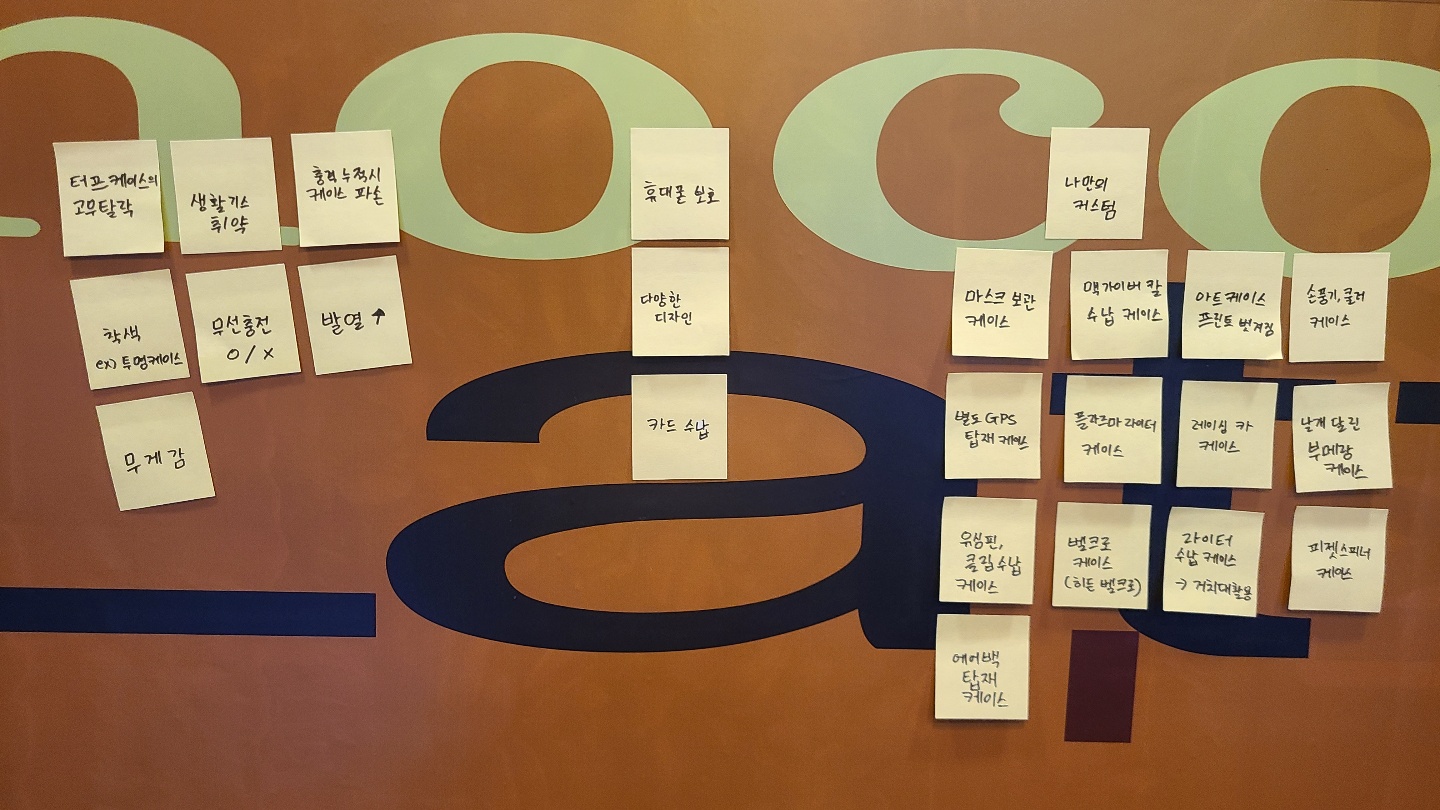 터프케이스의
고무탈락
생활기스
취약
충격 누적시
케이스 파손
착색
ex) 투명케이스
무선충전
O / X
발열 ↑
무게감
휴대폰 보호
다양한
디자인
카드 수납
나만의
커스텀
마스크 보관
케이스
맥가이버 칼
수납 케이스
아트케이스
프린트 벗겨짐
손풍기, 쿨러
케이스
별도 GPS
탑재 케이스
플라즈마 라이터
케이스
레이싱 카
케이스
날개 달린
부메랑
케이스
유심핀,
클립 수납
케이스
벨크로
케이스
(히든 벨크로)
라이터
수납 케이스
→ 거치대활용
피젯스피너
케이스
에어백
탑재
케이스
oco
at